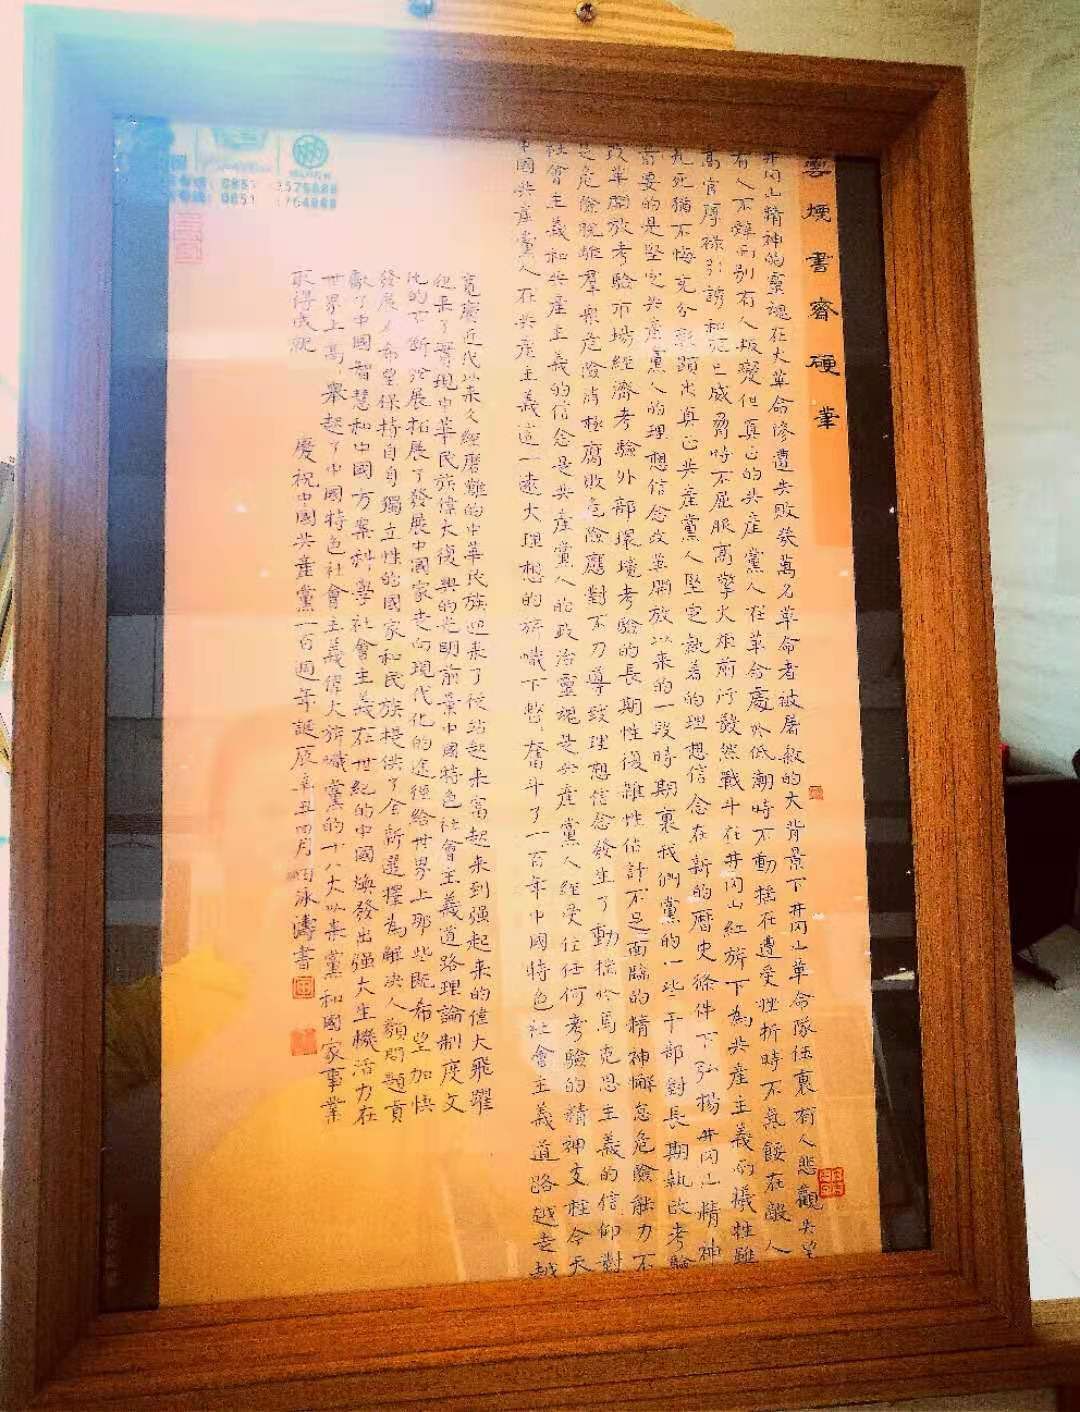 雲書齋硬筆
井冈山精神的靈魂在大革命慘遭失敗幾萬名革命者被屠殺的大背景下井冈山革命隊伍裏有人悲觀失望
有人不辭而別有人叛變但真正的共產黨人在革命處於低潮時不動搖在遭受挫折時不氣餒在敵人
高官厚祿引誘和死亡威脅時不屈服高擎火炬前行發然戰斗在井冈山紅旗下為共產主義而犧牲雖
九死猶不悔充分彰顯出真正共產黨人堅定執着的理想信念在新的歷史條件下弘楊井冈山精神
首要的是堅定共產黨人的理想信念改革開放以來的一段時期裏我們黨的一些干部對長期執政考驗
改革開放考驗市場經濟考驗外部環境考驗的長期性復雜性估計不足面臨的精神懈怠危險能力不
足危險脫離羣衆危險消極腐敗危險應對不力導致理想信念發生了動搖於馬克思主義的信仰對
社會主義和共產主義的信念是共產黨人的政治靈魂是共產黨人經受住任何考驗的精神支柱今天
中國共產黨人在共產主義這一遠大理想的旗幟下整奮斗了一百年中國特色社會主義道路越走越
寬廣近代以來久經磨難的中華民族迎來了從站起來富起來到强起來的偉大飛躍
迎來了實現中華民族偉大復興的光明前景中國特色社會主義道路理論制度文
化的不斷發展拓展了發展中國家走向現代化的途徑給世界上那些既希望加快
發展又希望保持自身獨立性的國家和民族提供了全新選擇為解决人類問題貢
獻了中國智慧和中國方案科學社會主義在世紀的中國煥發出强大生機活力在
世界上高高舉起了中國特色社會主義偉大旗幟黨的十八大以來黨和國家事業
取得成就
慶祝中國共產黨一百週年誕辰辛丑四月泳濤書